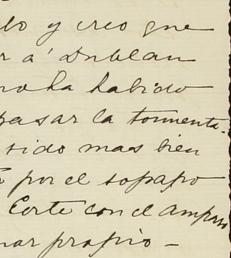 lo y creo que
r á Dublan
no ha habido
pasar la tormenta.
sido mas bien
por el sopapo
Corte con el ampar
mar propio —